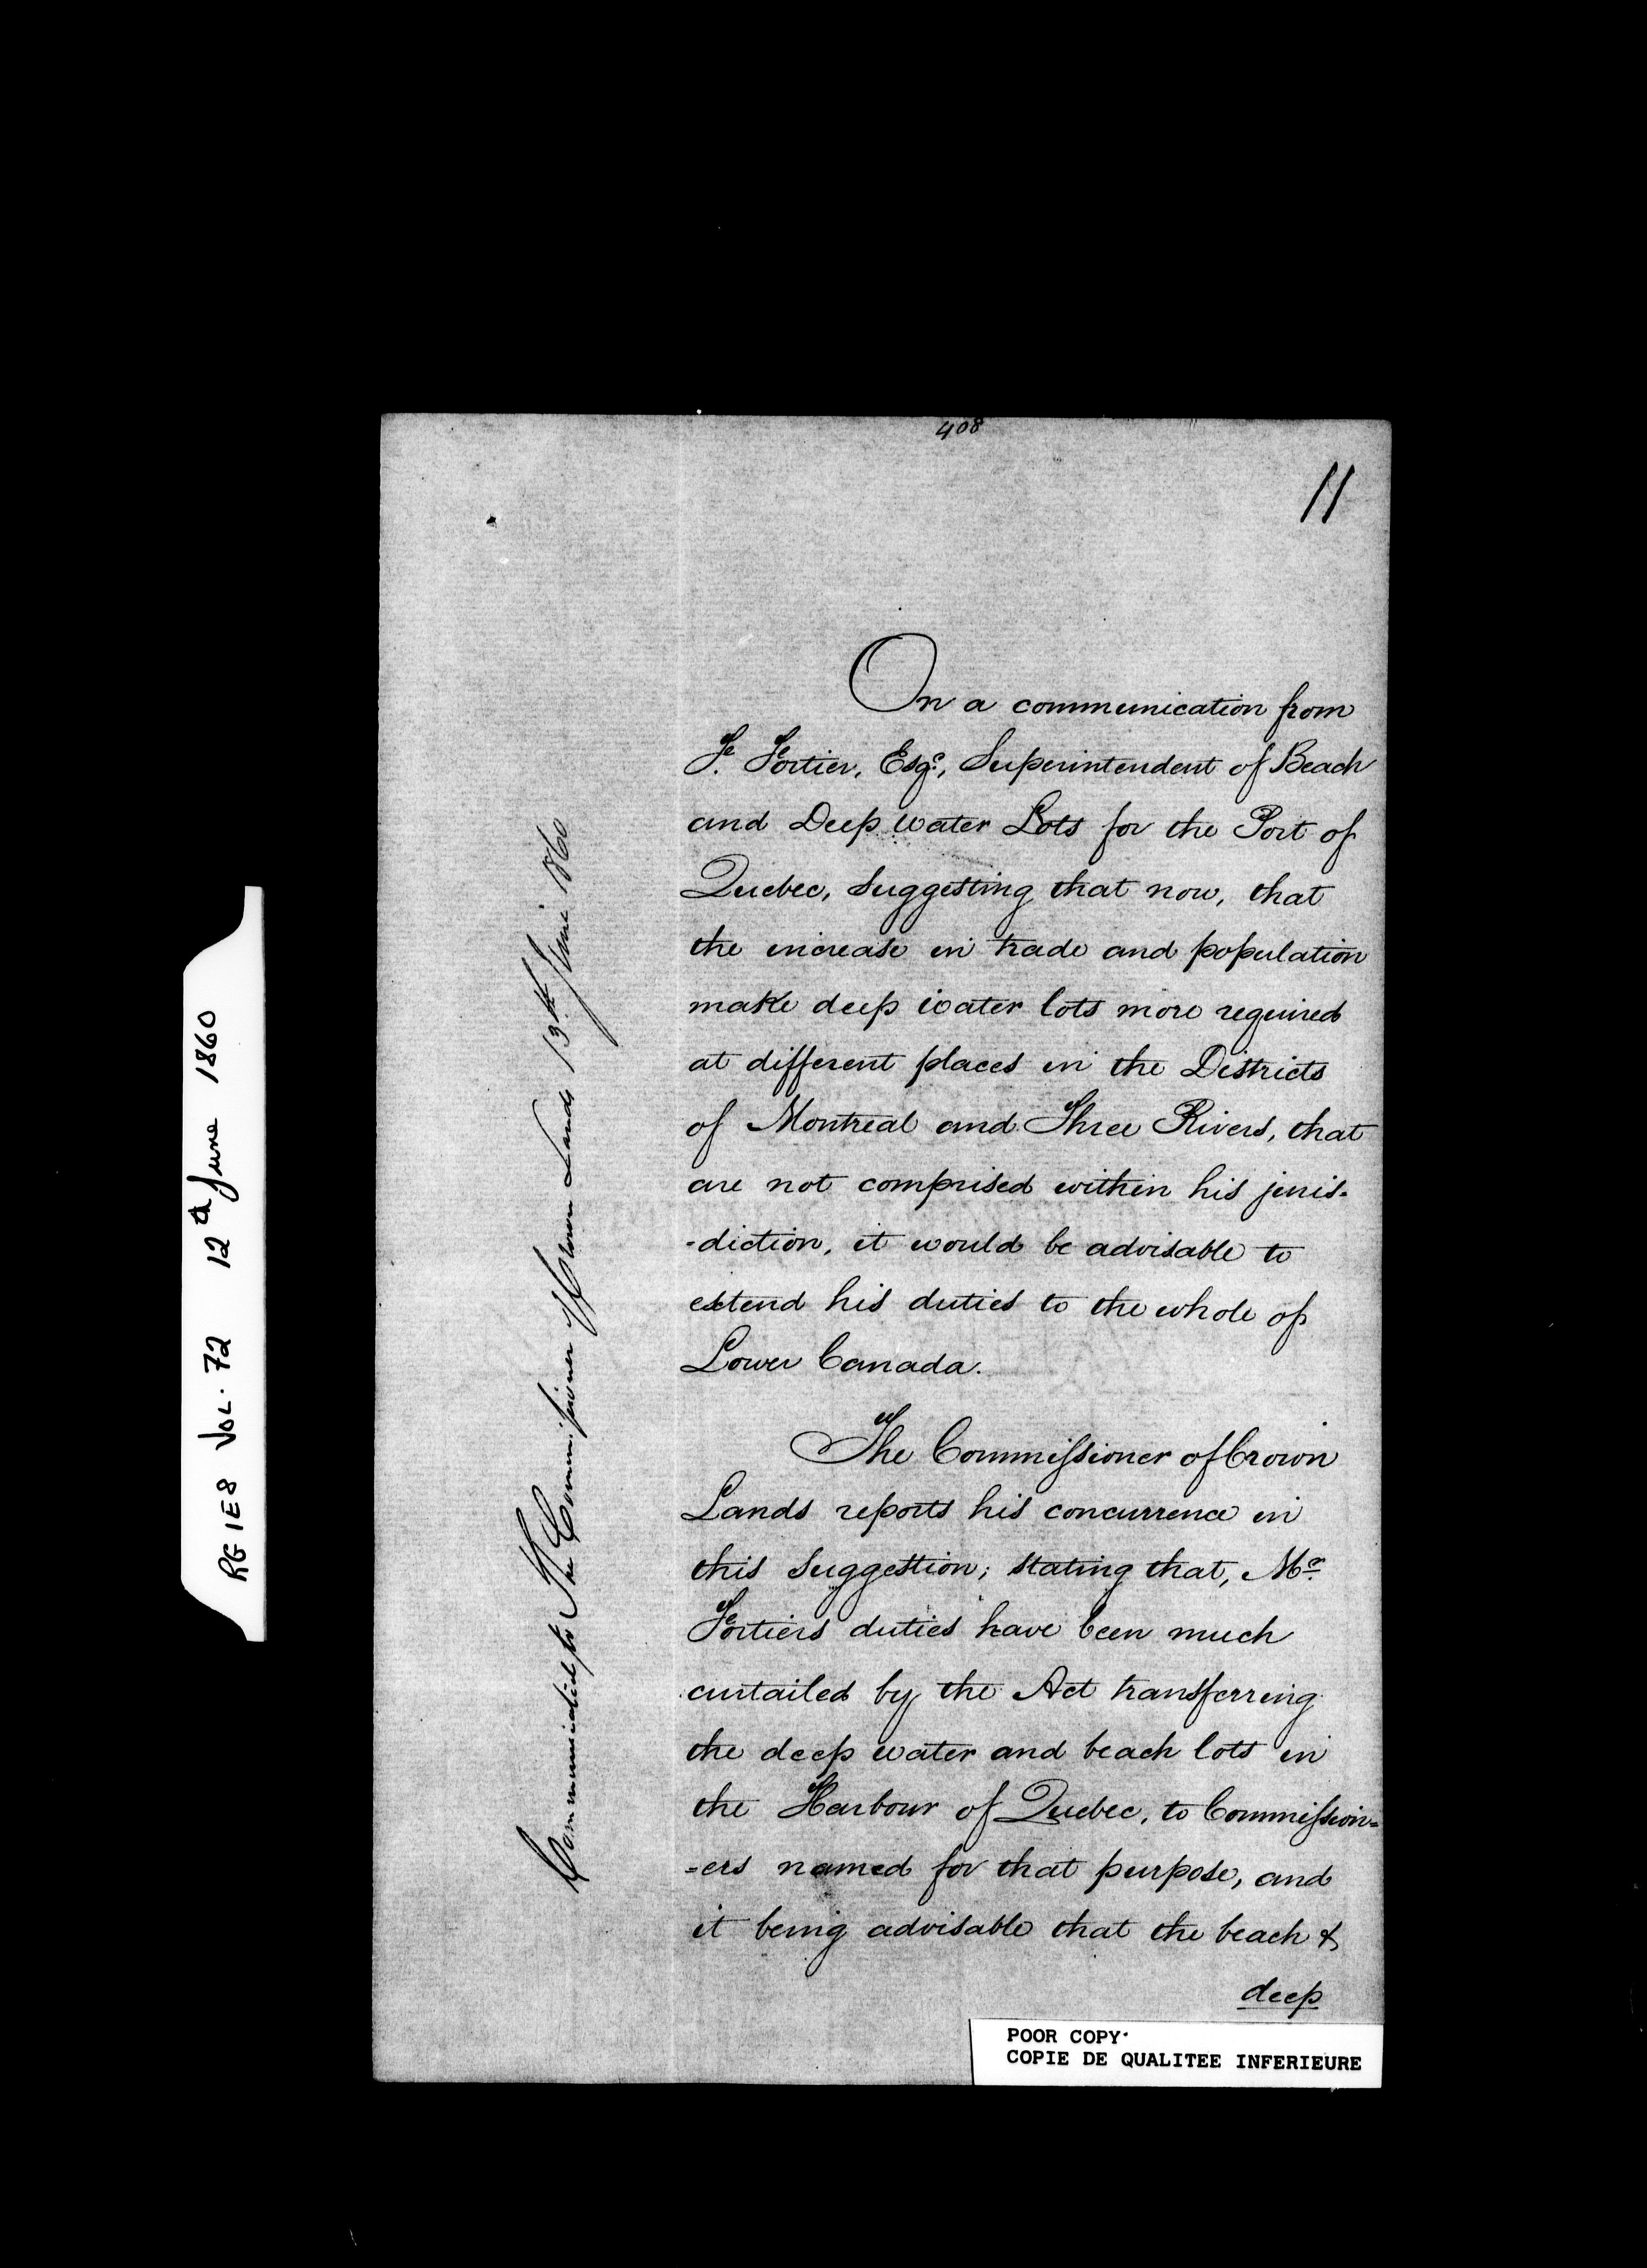 408
11
On a communication from
F. Fortier, Esqr., Superintendent of Beach
and Deep water Lots for the Port of
Quebec, suggesting that now, that
the increase in trade and population
make deep water lots more required
at different places in the Districts
of Montreal and Three Rivers, that
are not comprised within his juris-
-diction, it would be advisable to
extend his duties to the whole of
Lower Canada.
The Commissioner of Crown
Lands reports his concurrence in
this suggestion; stating that, Mr.
Fortiers duties have been much
curtailed by the Act transferring
the deep water and beach lots in
the Harbour of Quebec, to Commission=
=ers named for that purpose, and
it being advisable that the beach &
deep
Communicated to The Commissioner of Crown Lands 13th June 1860
RG 1E8 VOL. 72 12th June 1860
POOR COPY
COPIE DE QUALITEE INFERIEURE